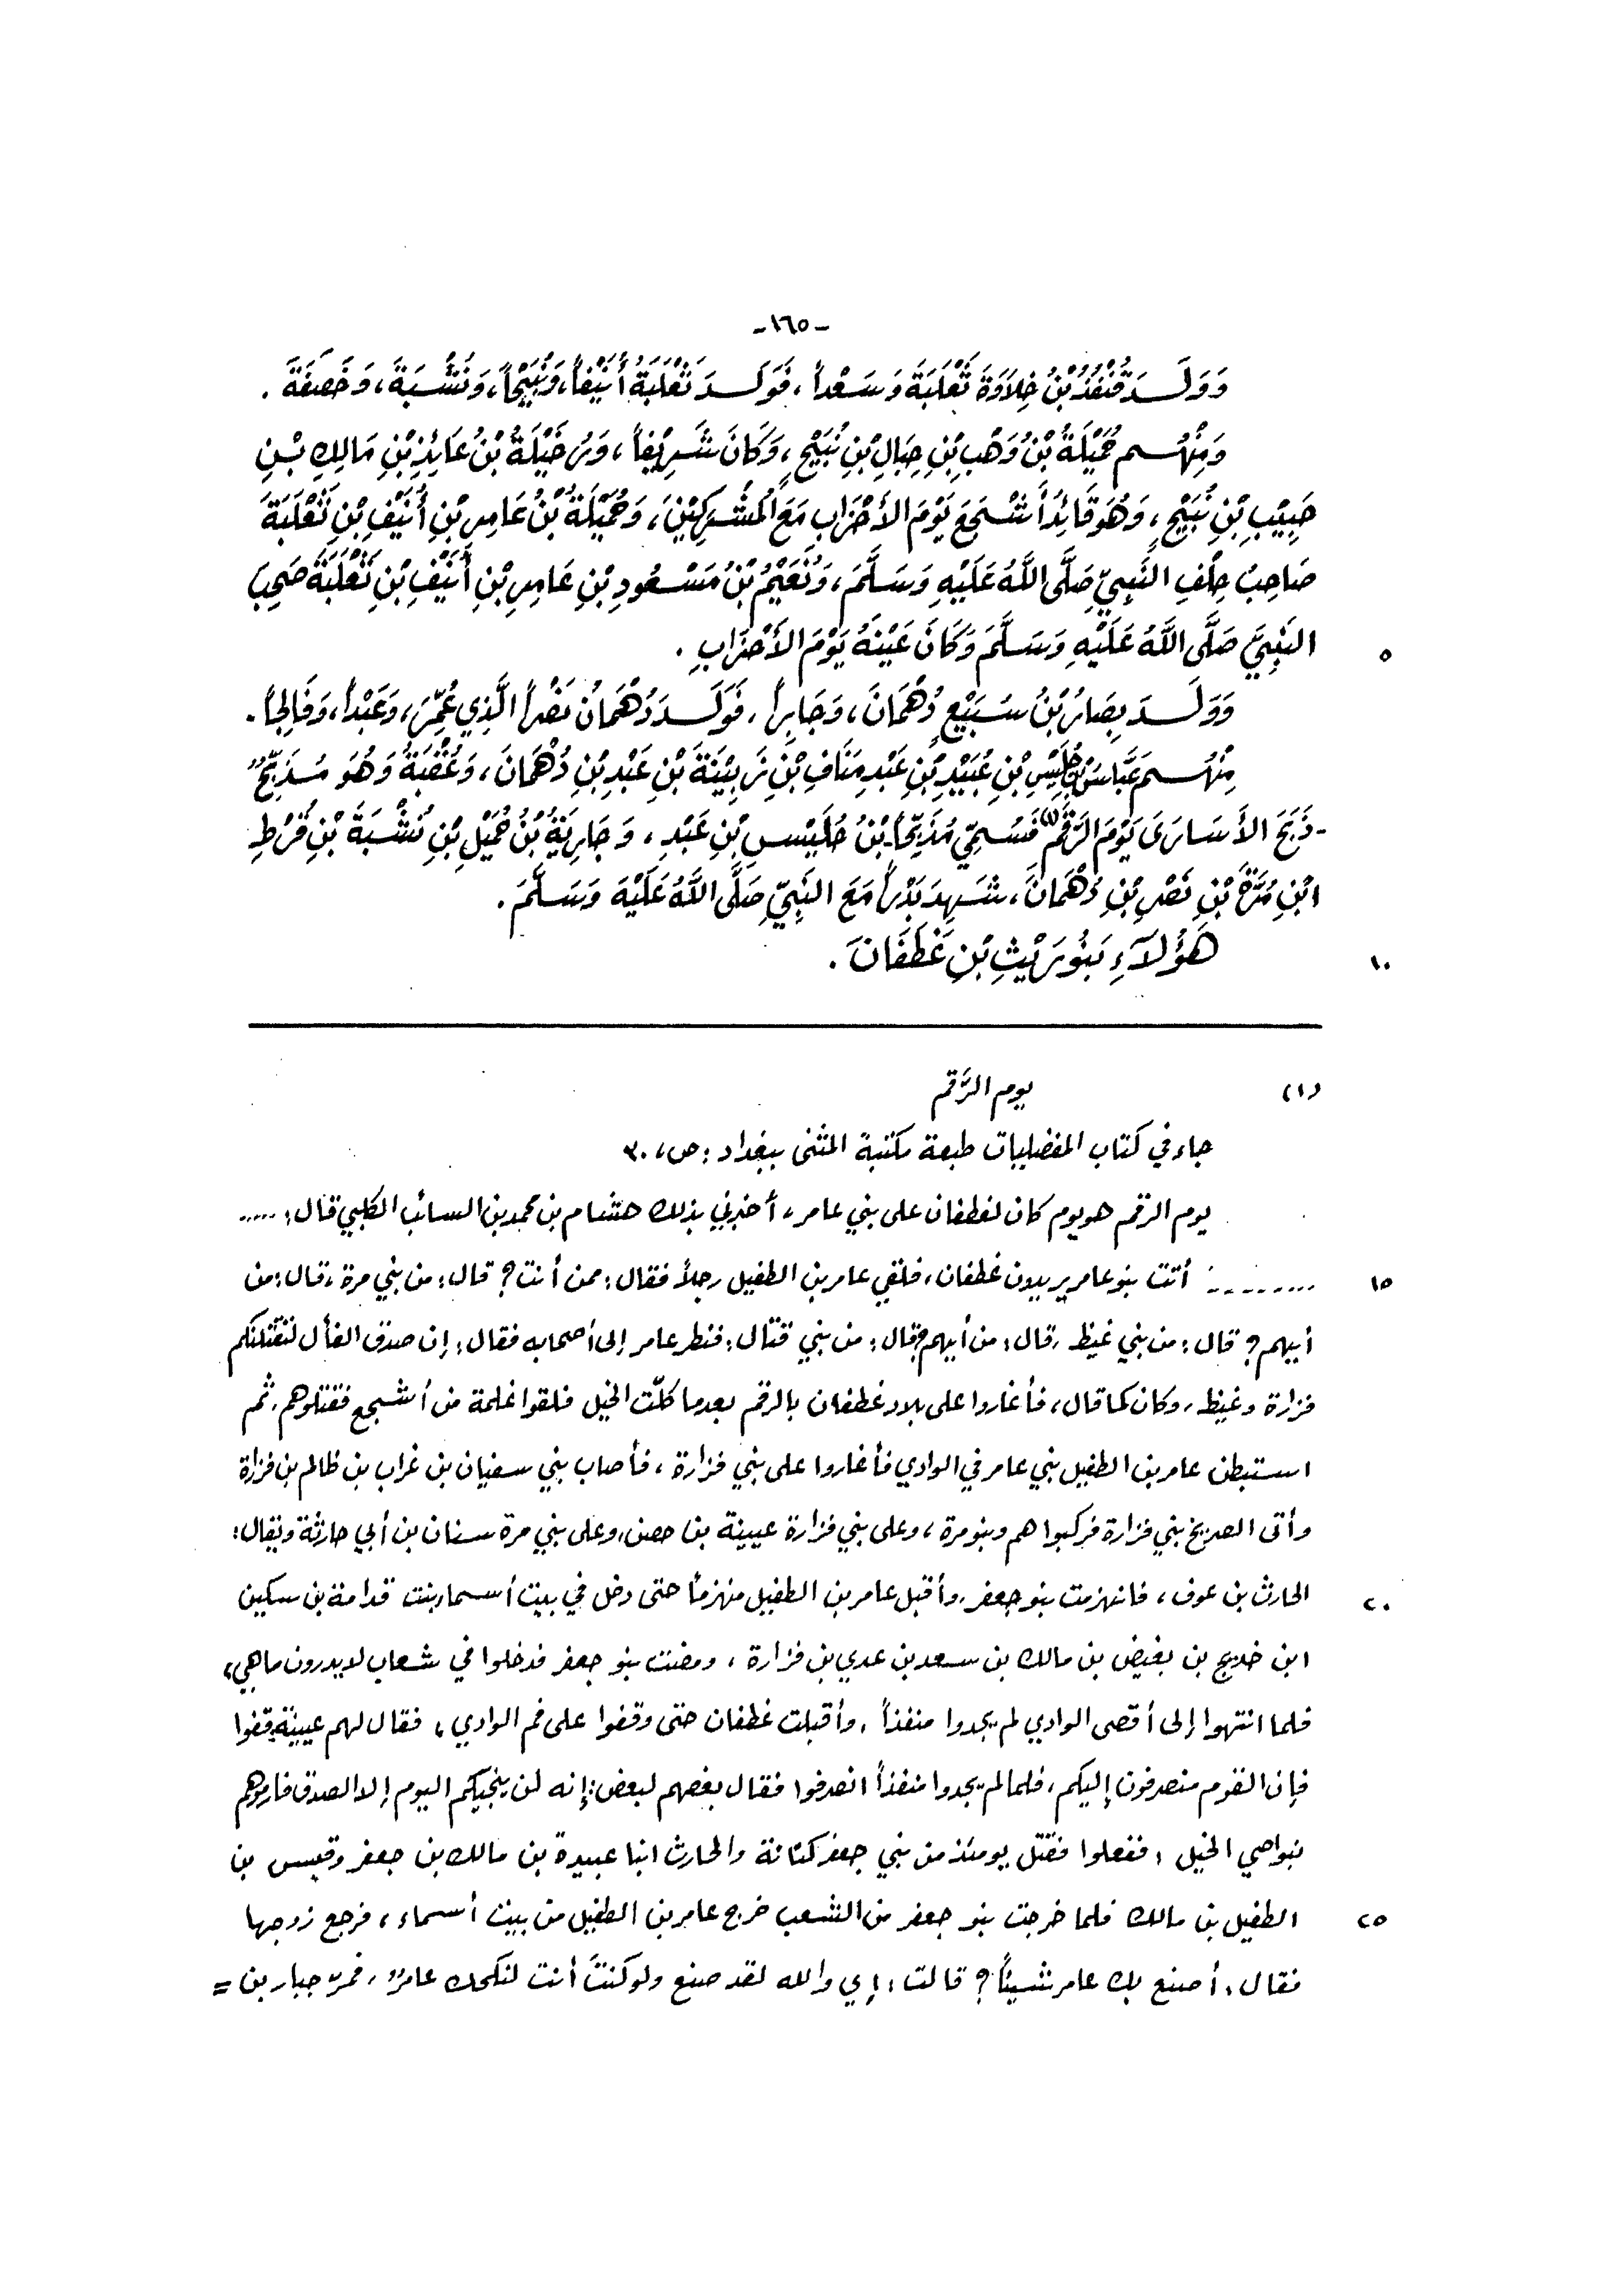 -١٦٥-
وَوَلَدَ قُنْفُذُ بْنُ خِلَاوَةَ ثَعْلَبَةَ وَسَعْداً، فَوَلَدَ ثَعْلَبَةُ أُنَيْفاً، وَنُبَيْحاً، وَنُشْبَةَ، وَخَصَفَةَ.
وَمِنْهُم حُمَيْلَةُ بْنُ وَهْبِ بْنِ حِبَالِ بْنِ نُبَيْحٍ، وَكَانَ شَرِيْفاً، وَرُخَيْلَةُ بْنُ عَائِذِ بْنِ مَالِكِ بْنِ
حَبِيْبِ بْنِ نُبَيْحٍ، وَهُوَ قَائِدُ أَشْجَعَ يَوْمَ الأَحْزَابِ مَعَ الْمُشْرِكِيْنَ، وَحُمَيْلَةُ بْنُ عَامِرِ بْنِ أُنَيْفِ بْنِ ثَعْلَبَةَ
صَاحِبُ حِلْفِ النَّبِيِّ صَلَّى اللَّهُ عَلَيْهِ وَسَلَّمَ، وَنُعَيْمُ بْنُ مَسْعُودِ بْنِ عَامِرِ بْنِ أُنَيْفِ بْنِ ثَعْلَبَةَ صَحِبَ
النَّبِيَّ صَلَّى اللَّهُ عَلَيْهِ وَسَلَّمَ وَكَانَ عَيْنَهُ يَوْمَ الأَحْزَابِ. ٥
وَوَلَدَ بِصَارُ بْنُ سُبَيْعٍ دُهْمَانَ، وَجَابِراً، فَوَلَدَ دُهْمَانُ نَصْراً الَّذِي عُمِّرَ، وَعَبْداً، وَفَالِجاً.
مِنْهُم عَبَّاسُ بْنُ حُلَيْسِ بْنِ عُبَيْدِ بْنِ عَبْدِ مَنَافِ بْنِ زَبِيْنَةَ بْنِ عَبْدِ بْنِ دُهْمَانَ، وَعُقْبَةُ وَهُوَ مُذَبِّحٌ
-ذَبَحَ الأَسَارَى يَوْمَ الرَّقَمِ(١) فَسُمِّيَ مُذَبِّحاً- بْنُ حُلَيْسِ بْنِ عَبْدِ، وَجَارِيَةُ بْنُ حُمَيْلِ بْنِ نُشْبَةَ بْنِ قُرْطِ
ابْنِ مُرَّةَ بْنِ نَصْرِ بْنِ دُهْمَانَ، شَهِدَ بَدْراً مَعَ النَّبِيِّ صَلَّى اللَّهُ عَلَيْهَ وَسَلَّمَ.
هَؤُلَاءِ بَنُو رَيْثِ بْنِ غَطَفَانَ. ١٠
(١) يوم الرَّقم
جاء في كتاب المفضليات طبعة مكتبة المثنى ببغداد: ص، ٣٠
يوم الرقم هو يوم كان لغطفان على بني عامر، أخبرني بذلك هشام بن محمد بن السائب الكلبي قال: .....
......... أتت بنو عامر يريدون غطفان، فلقي عامر بن الطفيل رجلاً فقال: ممن أنت؟ قال: من بني مرة، قال: من ١٥
أيهم؟ قال: من بني غيظ، قال: من أيهم؟ قال: من بني قتال: فنظر عامر إلى أصحابه فقال: إن صدق الفأل لتقتلنكم
فزارة وغيظ، وكان كما قال، فأغاروا على بلاد غطفان بالرقم بعدما كلّت الخيل فلقوا غلمة من أشجع فقتلوهم، ثم
استبطن عامر بن الطفيل بني عامر في الوادي فأغاروا على بني فزارة، فأصاب بني سفيان بن غراب بن ظالم بن فزارة
وأتى الصريخ بني فزارة فركبوا هم وبنو مرة، وعلى بني فزارة عيينة بن حصن، وعلى بني مرة سنان بن أبي حارثة ويقال:
الحارث بن عوف، فانهزمت بنو جعفر، وأقبل عامر بن الطفيل منهزماً حتى دخل في بيت أسماء بنت قدامة بن سكين ٢٠
ابن خديج بن بغيض بن مالك بن سعد بن عدي بن فزارة، ومضت بنو جعفر فدخلوا في شعاب لا يدرون ما هي،
فلما انتهوا إلى أقصى الوادي لم يجدوا منفذاً، وأقبلت غطفان حتى وقفوا على فم الوادي، فقال لهم عيينة: قفوا
فإن القوم منصرفون إليكم، فلما لم يجدوا منفذاً انصرفوا فقال بعضهم لبعض: إنه لن ينجيكم اليوم إلا الصدق فارموهم
بنواصي الخيل، ففعلوا فقتل يومئذ من بني جعفر كنانة والحارث ابنا عبيدة بن مالك بن جعفر وقيس بن
الطفيل بن مالك فلما خرجت بنو جعفر من الشعب خرج عامر بن الطفيل من بيت أسماء، فرجع زوجها ٢٥
فقال: أصنع بك عامر شيئاً؟ قالت: إي والله لقد صنع ولو كنتَ أنت لنكحك عامرٌ، فمرّ جبار بن =